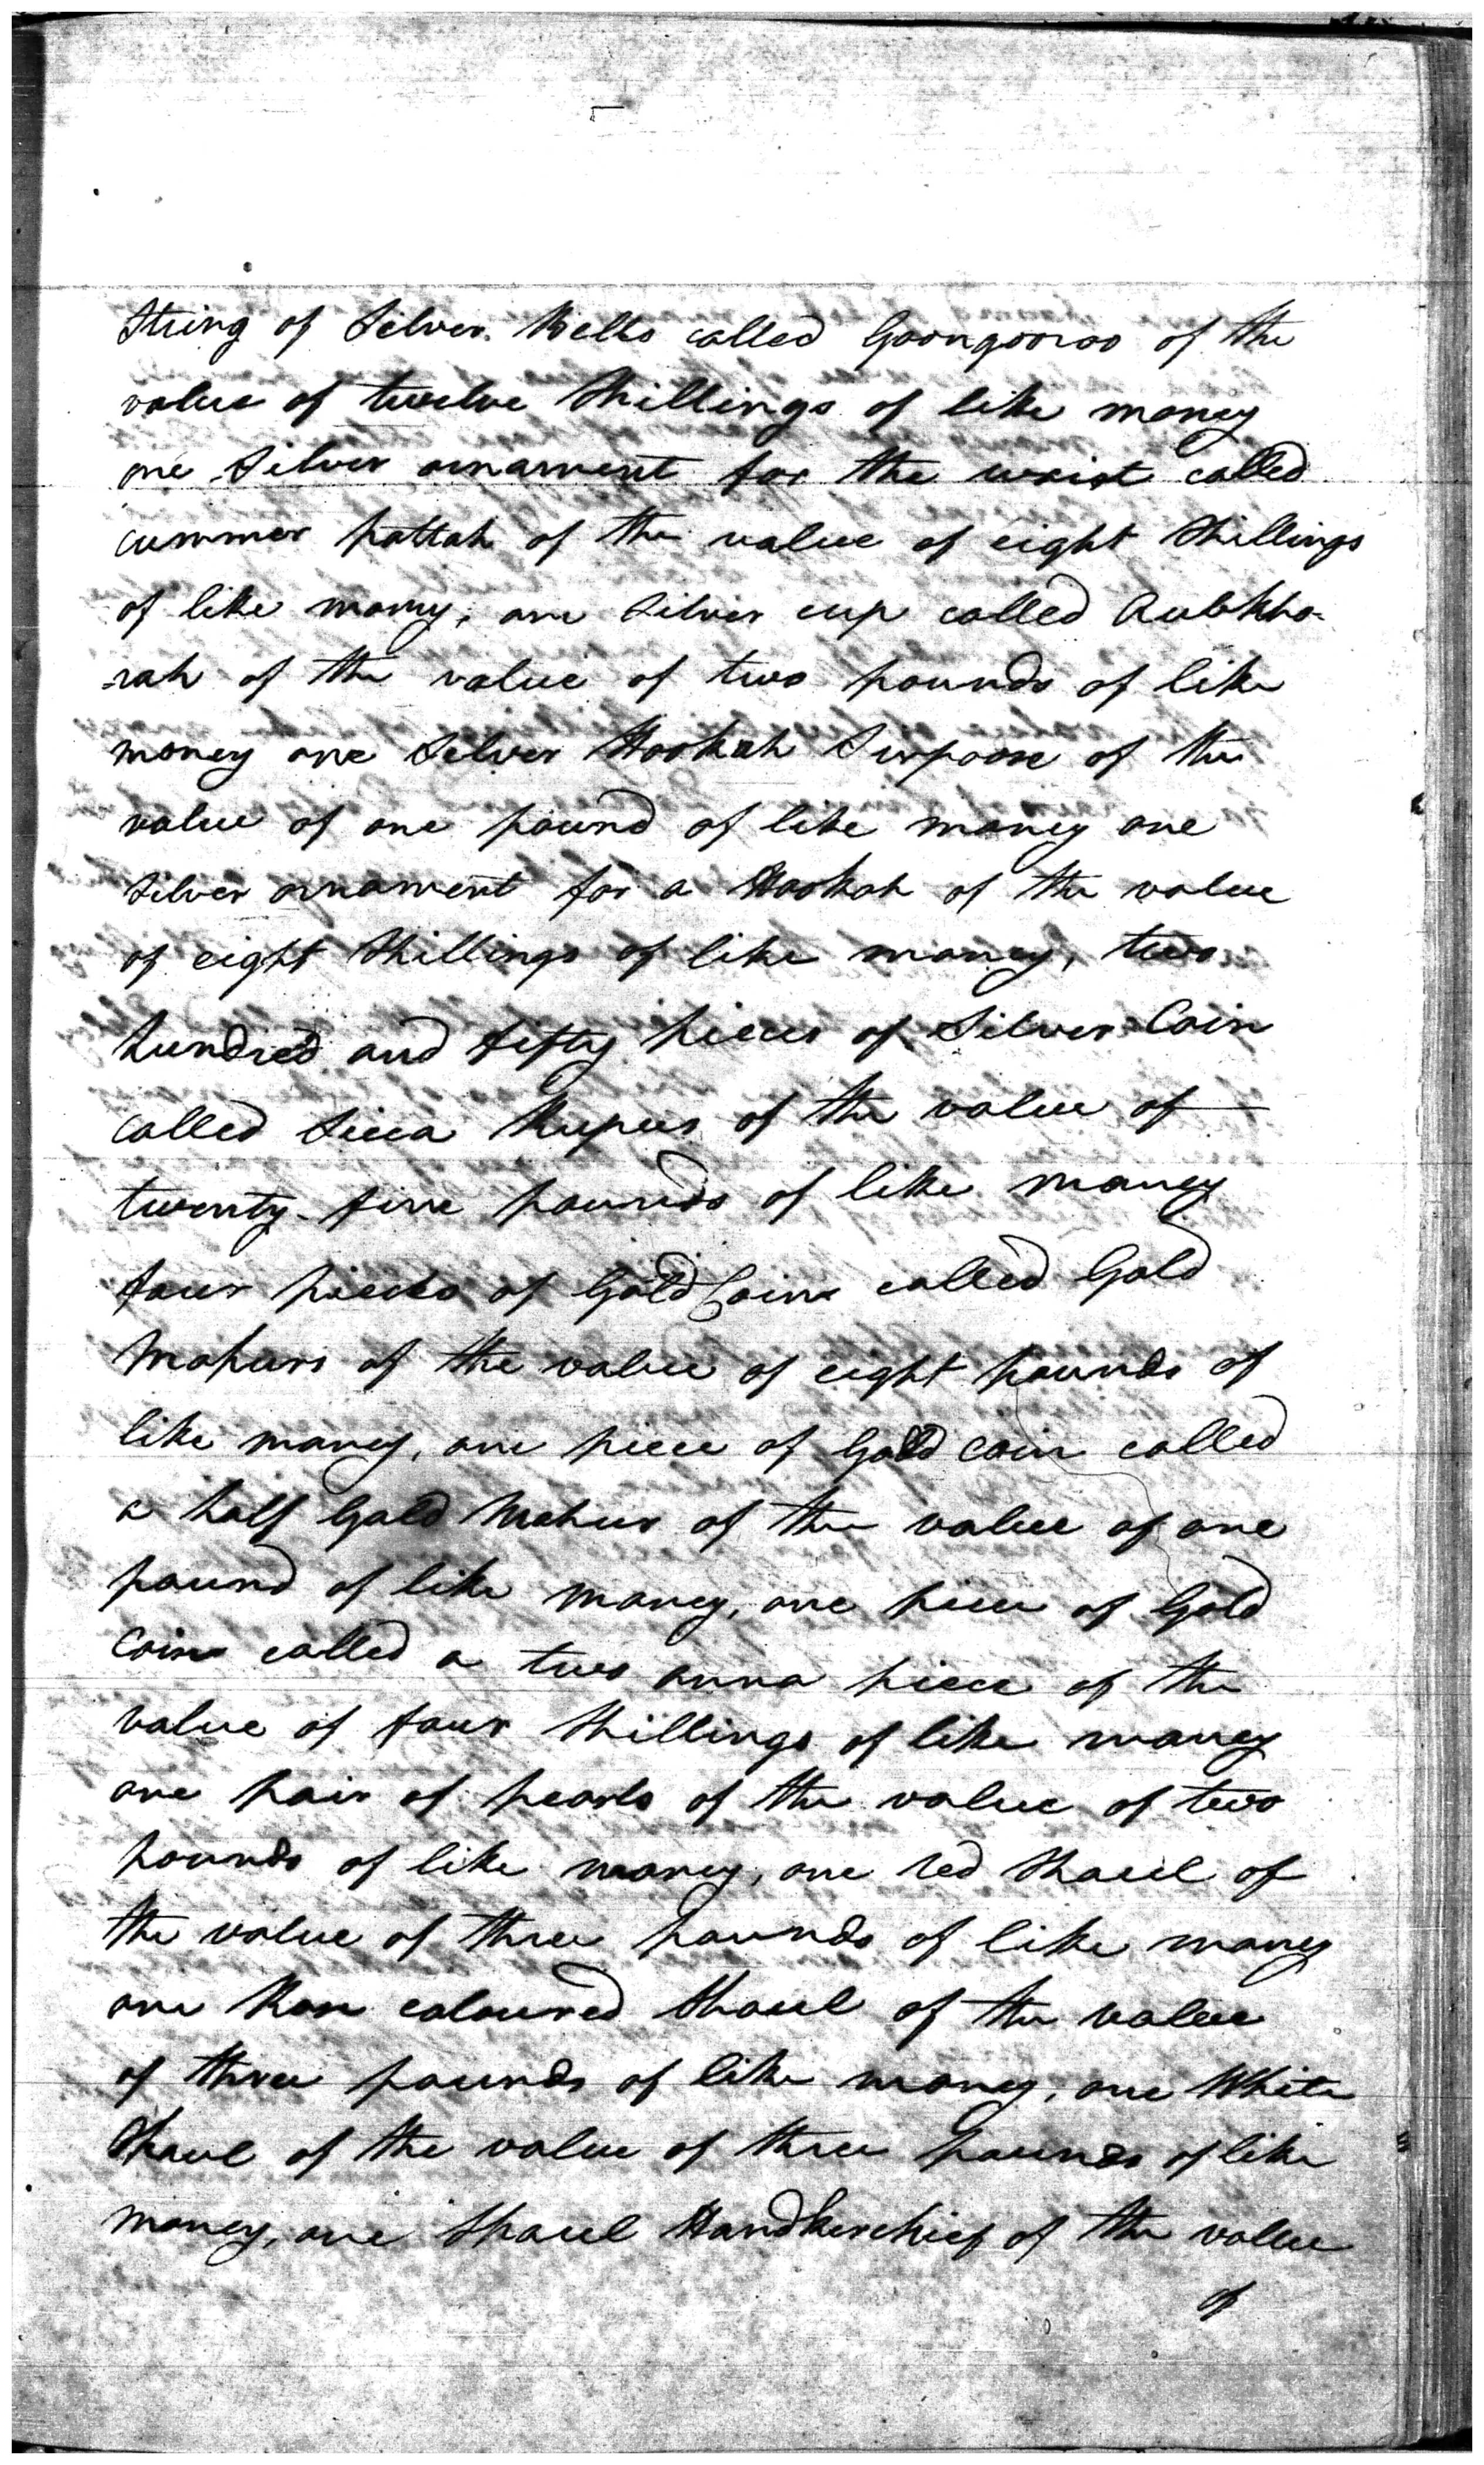 String of Silver Bells called Goongooroo of the
value of twelve Shillings of like money
one Silver ornament for the waist called
cummer pattah of the value of eight Shillings
of like money, one Silver cup called Aubkho-
-rah of the value of two pounds of like
money one Silver Hookah Surpoose of the
value of one pound of like money one
Silver ornament for a Hookah of the value
of eight Shillings of like money, two
hundred and fifty pieces of Silver Coin
called Sicca Rupees of the value of
twenty-five pounds of like money
four pieces of Gold Coin called Gold
Mohurs of the value of eight pounds of
like money, one piece of Gold coin called
a half Gold Mohur of the value of one
pound of like money, one piece of Gold
Coin called a two anna piece of the
value of four Shillings of like money
one pair of pearls of the value of two
pounds of like money, one red Shaul of
the value of three pounds of like money
one Rose coloured Shaul of the value
of three pounds of like money, one White
Shaul of the value of three pounds of like
money, one Shaul Handkerchief of the value
of